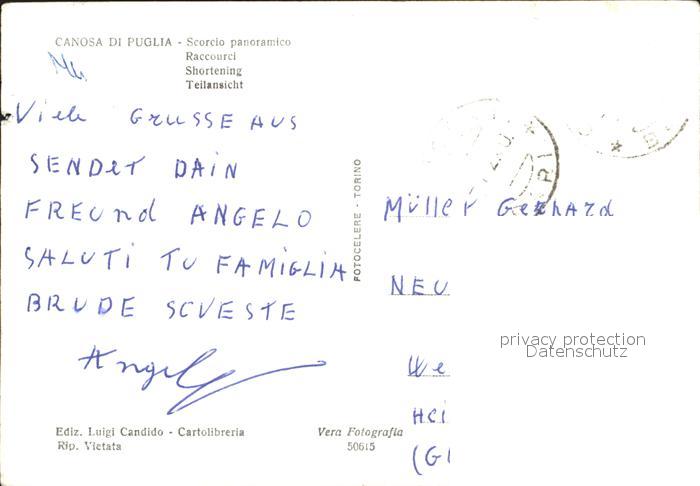 CANOSA DI PUGLIA - Scorcio panoramico
Raccourci
Shortening
Teilansicht
Viele GRUSSE AUS
SENDET DAIN
FREUnd ANGELO
SALUTI TU FAMIGLIA
BRUDE SCVESTE
Angelo
Ediz. Luigi Candido - Cartolibreria
Rip. Vietata
Vera Fotografia
50615
FOTOCELERE - TORINO
Müller Gerhard
NEU
privacy protection
Datenschutz
We
HEI
(GI